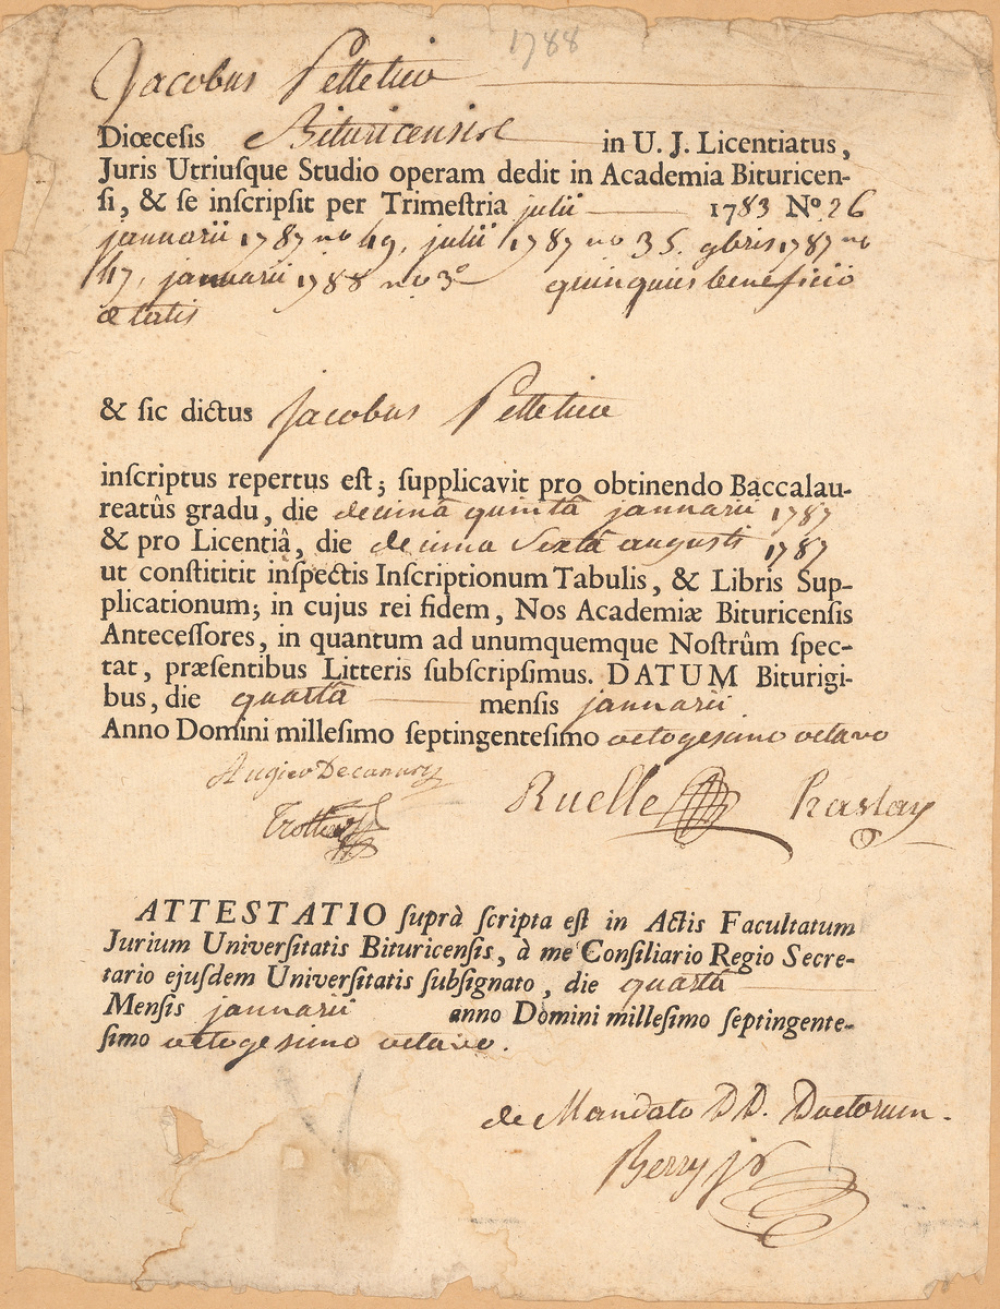 1788
Jacobus Pelletier
Diœcesis Bituricensis in U. J. Licentiatus,
Juris Utriuſque Studio operam dedit in Academia Bituricen-
ſi, & ſe inſcripſit per Trimeſtria julii 1783 Nº. 26
januarii 1787 no 49, julii 1787 no 35. 9bris 1787 no
47, januarii 1788 no 3º quinquies beneficio
ætatis
& ſic dictus Jacobus Pelletier
inſcriptus repertus eſt; ſupplicavit pro obtinendo Baccalau-
reatûs gradu, die decima quinta januarii 1787
& pro Licentiâ, die decima sexta augusti 1787
ut conſtititit inſpectis Inſcriptionum Tabulis, & Libris Sup-
plicationum; in cujus rei fidem, Nos Academiæ Bituricenſis
Anteceſſores, in quantum ad unumquemque Noſtrûm ſpec-
tat, præſentibus Litteris ſubſcripſimus. DATUM Biturigi-
bus, die quarta mensis januarii
Anno Domini milleſimo ſeptingenteſimo octogesimo octavo
Augier Decanus
Trottier Ruelle
ATTESTATIO ſuprà ſcripta eſt in Actis Facultatum
Jurium Univerſitatis Bituricenſis, à me Conſiliario Regio Secre-
tario ejuſdem Univerſitatis ſubſignato, die quarta
Mensis januarii anno Domini milleſimo ſeptingente-
ſimo octogesimo octavo.
de Mandato DD. Doctorum.
Berry jr